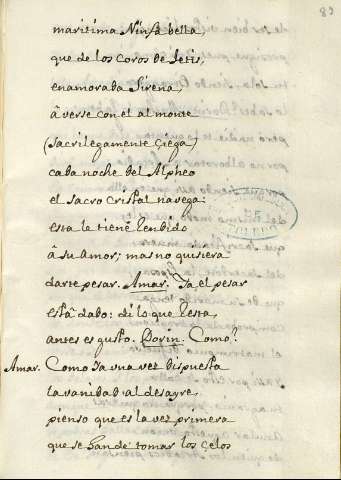 89
maritima Ninfa bella,
que de los Coros de Tetis,
enamorada Sirena,
â verse con el al monte
(sacrilegamente çiega)
cada noche del Alpheo
el sacro Cristal navega:
esta le tiene rendido
â su amor; mas no quisiera
darte pesar. Amar. Ya el pesar
està dado: di lo que resta,
antes es gusto. Dorin. Como?
Amar. Como ya vna vez dispuesta
la vanidad al desayre,
pienso que es la vez primera
que se han de tomar los çelos
TOLEDO